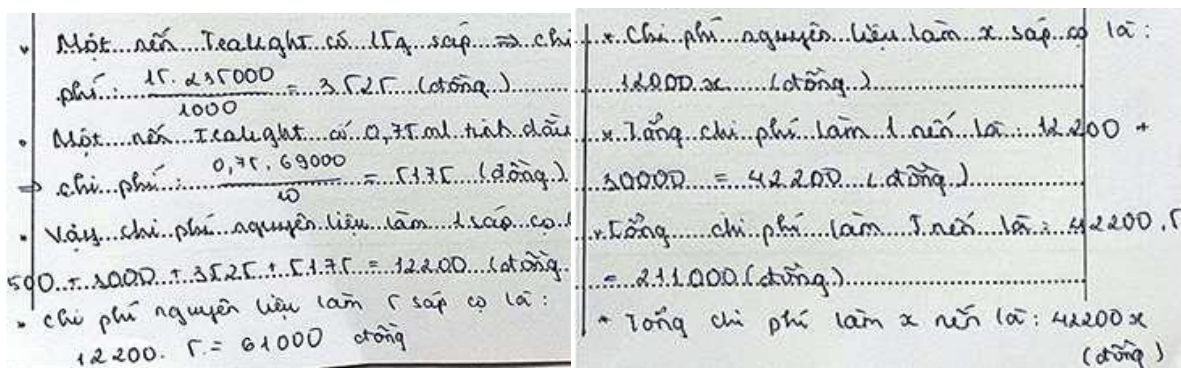 • Một nến Tealight có 15g sáp ⇒ chi
phí: 15.235000/1000 = 3525 (đồng)
• Một nến Tealight có 0,75 ml tinh dầu
⇒ chi phí: 0,75.69000/10 = 5175 (đồng)
• Vậy chi phí nguyên liệu làm 1 sáp cọ
500 + 3000 + 3525 + 5175 = 12200 (đồng
• chi phí nguyên liệu làm 5 sáp cọ là:
12200. 5 = 61000 đồng
* Chi phí nguyên liệu làm x sáp cọ là:
12000 x (đồng)
* Tổng chi phí làm 1 nến là: 12.200 +
30000 = 42200 (đồng)
* Tổng chi phí làm 5 nến là: 42200.5
= 211000 (đồng)
* Tổng chi phí làm x nến là: 42200x
(đồng)